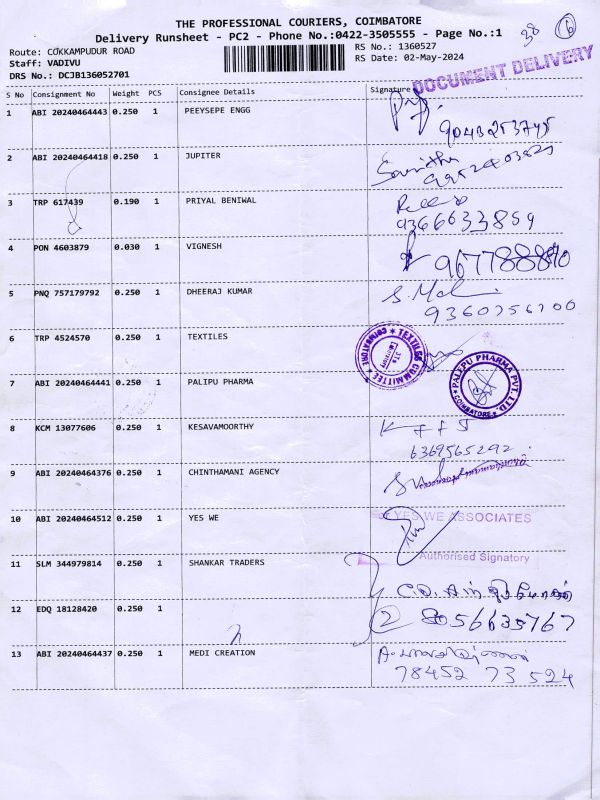 THE PROFESSIONAL COURIERS, COIMBATORE
Delivery Runsheet - PC2 - Phone No.:0422-3505555 - Page No.:1
38 6
Route: COKKAMPUDUR ROAD
Staff: VADIVU
DRS No.: DCJB136052701
RS No.: 1360527
RS Date: 02-May-2024
DOCUMENT DELIVERY
S No Consignment No Weight PCS Consignee Details Signature
1 ABI 20240464443 0.250 1 PEEYSEPE ENGG
9043253745
2 ABI 20240464418 0.250 1 JUPITER
3 TRP 617439 0.190 1 PRIYAL BENIWAL
9366633859
4 PON 4603879 0.030 1 VIGNESH
5 PNQ 757179792 0.250 1 DHEERAJ KUMAR
9360756700
6 TRP 4524570 0.250 1 TEXTILES
TEXTILES COMMITTEE COIMBATORE
7 ABI 20240464441 0.250 1 PALIPU PHARMA
PALEPU PHARMA PVT. LTD. COIMBATORE
8 KCM 13077606 0.250 1 KESAVAMOORTHY
6369565292
9 ABI 20240464376 0.250 1 CHINTHAMANI AGENCY
10 ABI 20240464512 0.250 1 YES WE
YES WE ASSOCIATES
Authorised Signatory
11 SLM 344979814 0.250 1 SHANKAR TRADERS
12 EDQ 18128420 0.250 1
2 8056635767
13 ABI 20240464437 0.250 1 MEDI CREATION
78452 73 524